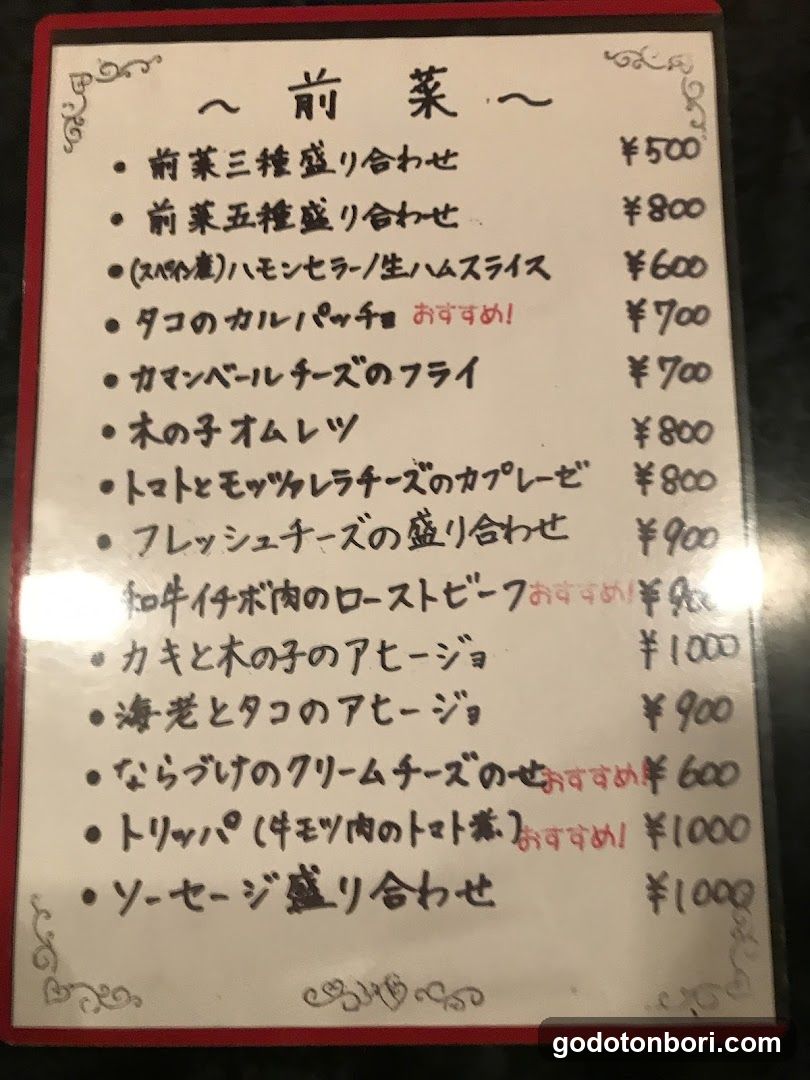 ~ 前 菜 ~
• 前菜三種盛り合わせ ¥500
• 前菜五種盛り合わせ ¥800
• (スペイン産)ハモンセラーノ生ハムスライス ¥600
• タコのカルパッチョ おすすめ! ¥700
• カマンベールチーズのフライ ¥700
• 木の子オムレツ ¥800
• トマトとモッツァレラチーズのカプレーゼ ¥800
• フレッシュチーズの盛り合わせ ¥900
和牛イチボ肉のローストビーフ おすすめ! ¥900
• カキと木の子のアヒージョ ¥1000
• 海老とタコのアヒージョ ¥900
• ならづけのクリームチーズのせ おすすめ! ¥600
• トリッパ(牛モツ肉のトマト煮) おすすめ! ¥1000
• ソーセージ盛り合わせ ¥1000
godotonbori.com